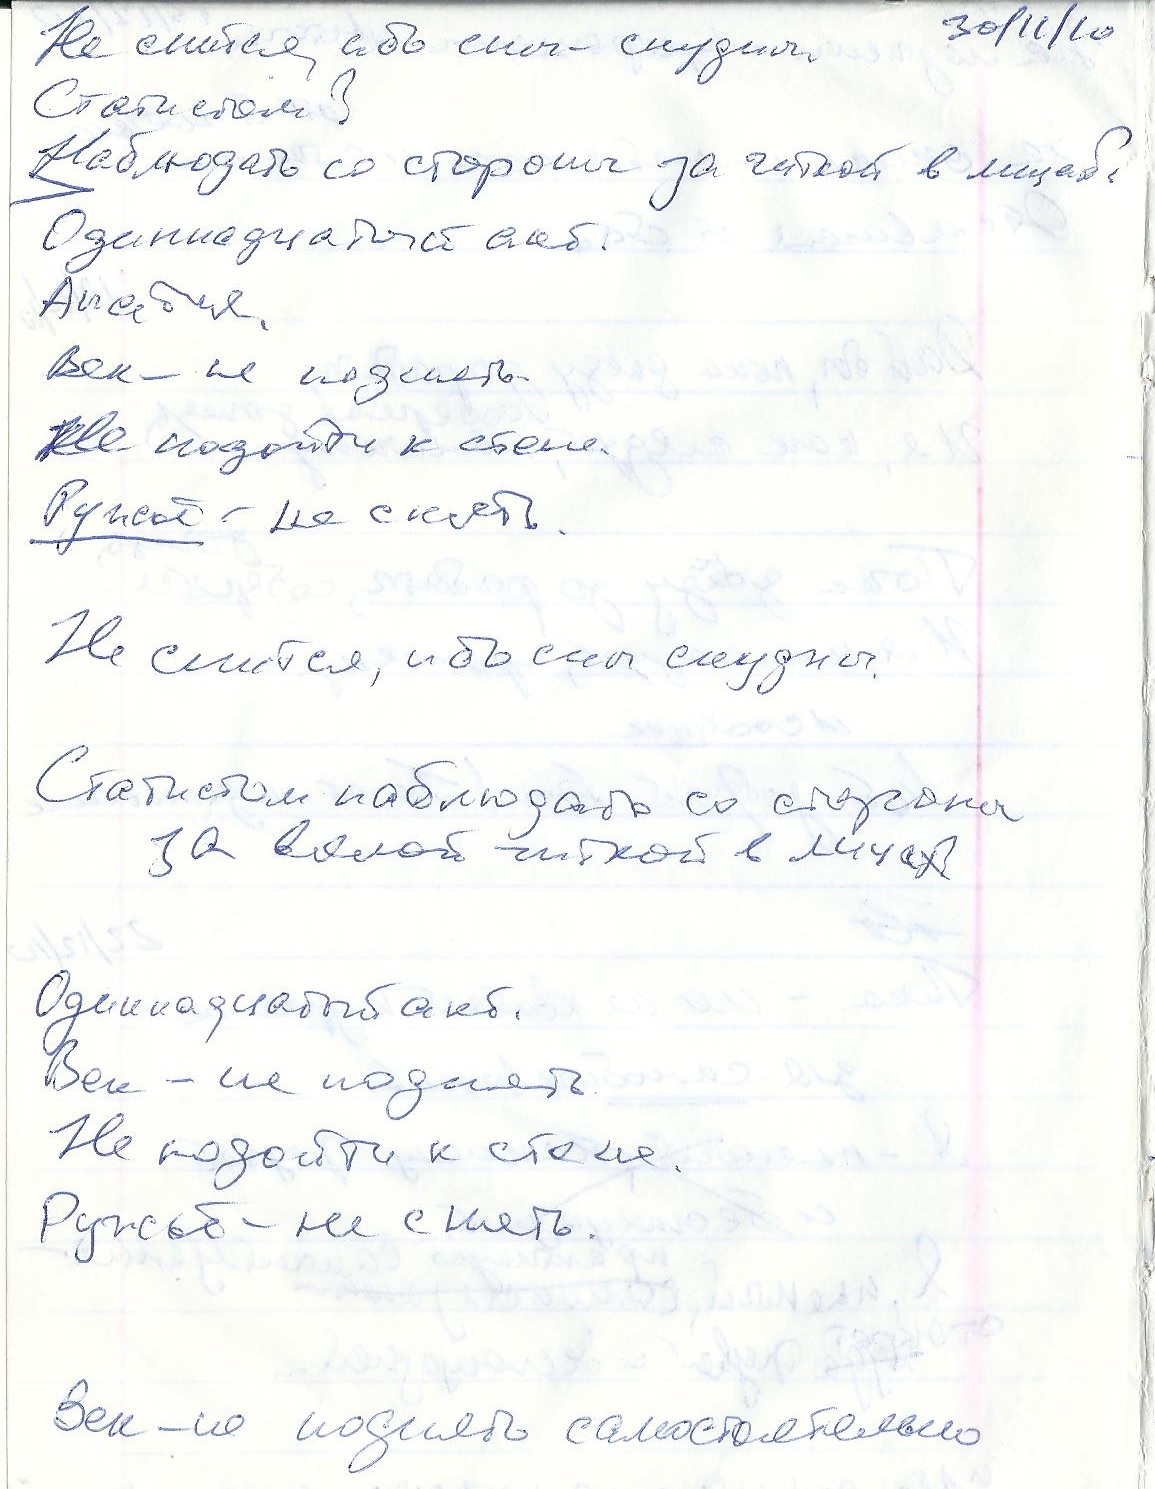 30/11/10
Не спится, ибо сны – скудны.
Статистом
Наблюдать со стороны за читкой в лицах.
Одиннадцатый акт.
Апатия.
Век – не поднять.
Не подойти к стене.
Ружьё – не снять.
Не спится, ибо сны скудны.
Статистом наблюдать со стороны
за вялой читкой в лицах
Одиннадцатый акт.
Век – не поднять.
Не подойти к стене.
Ружьё – не снять.
Век – не поднять самостоятельно